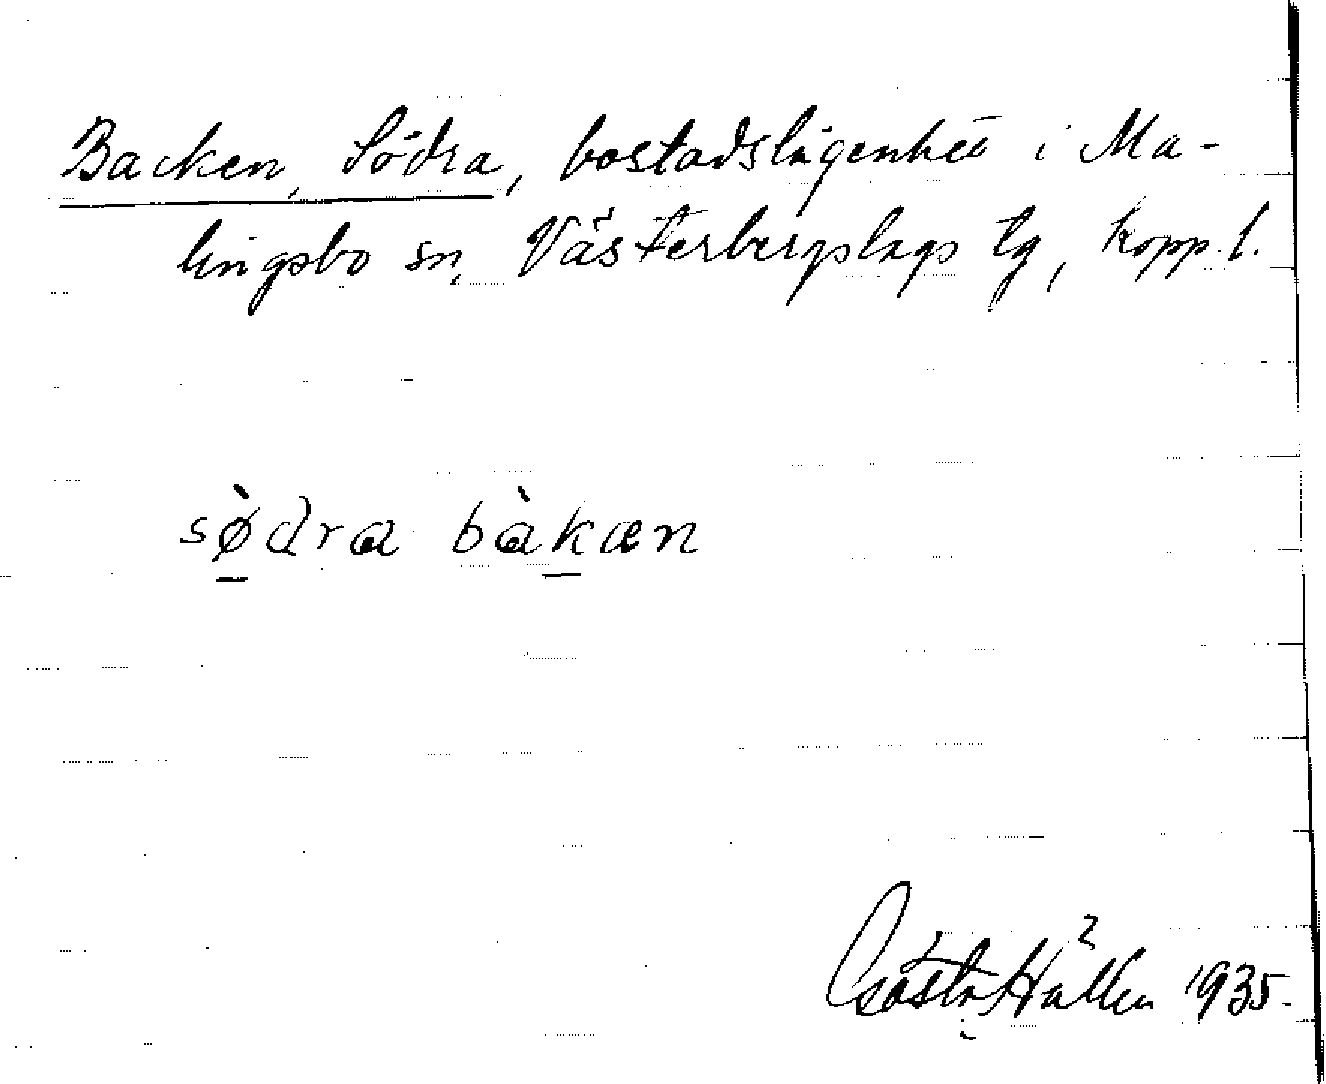 Backen, Södra, bostadslägenhet i Ma-
lingsbo sn, Västerbergslags tg, Kopp. l.
sø̀dra bàkæn
Gösta Hallen 1935.